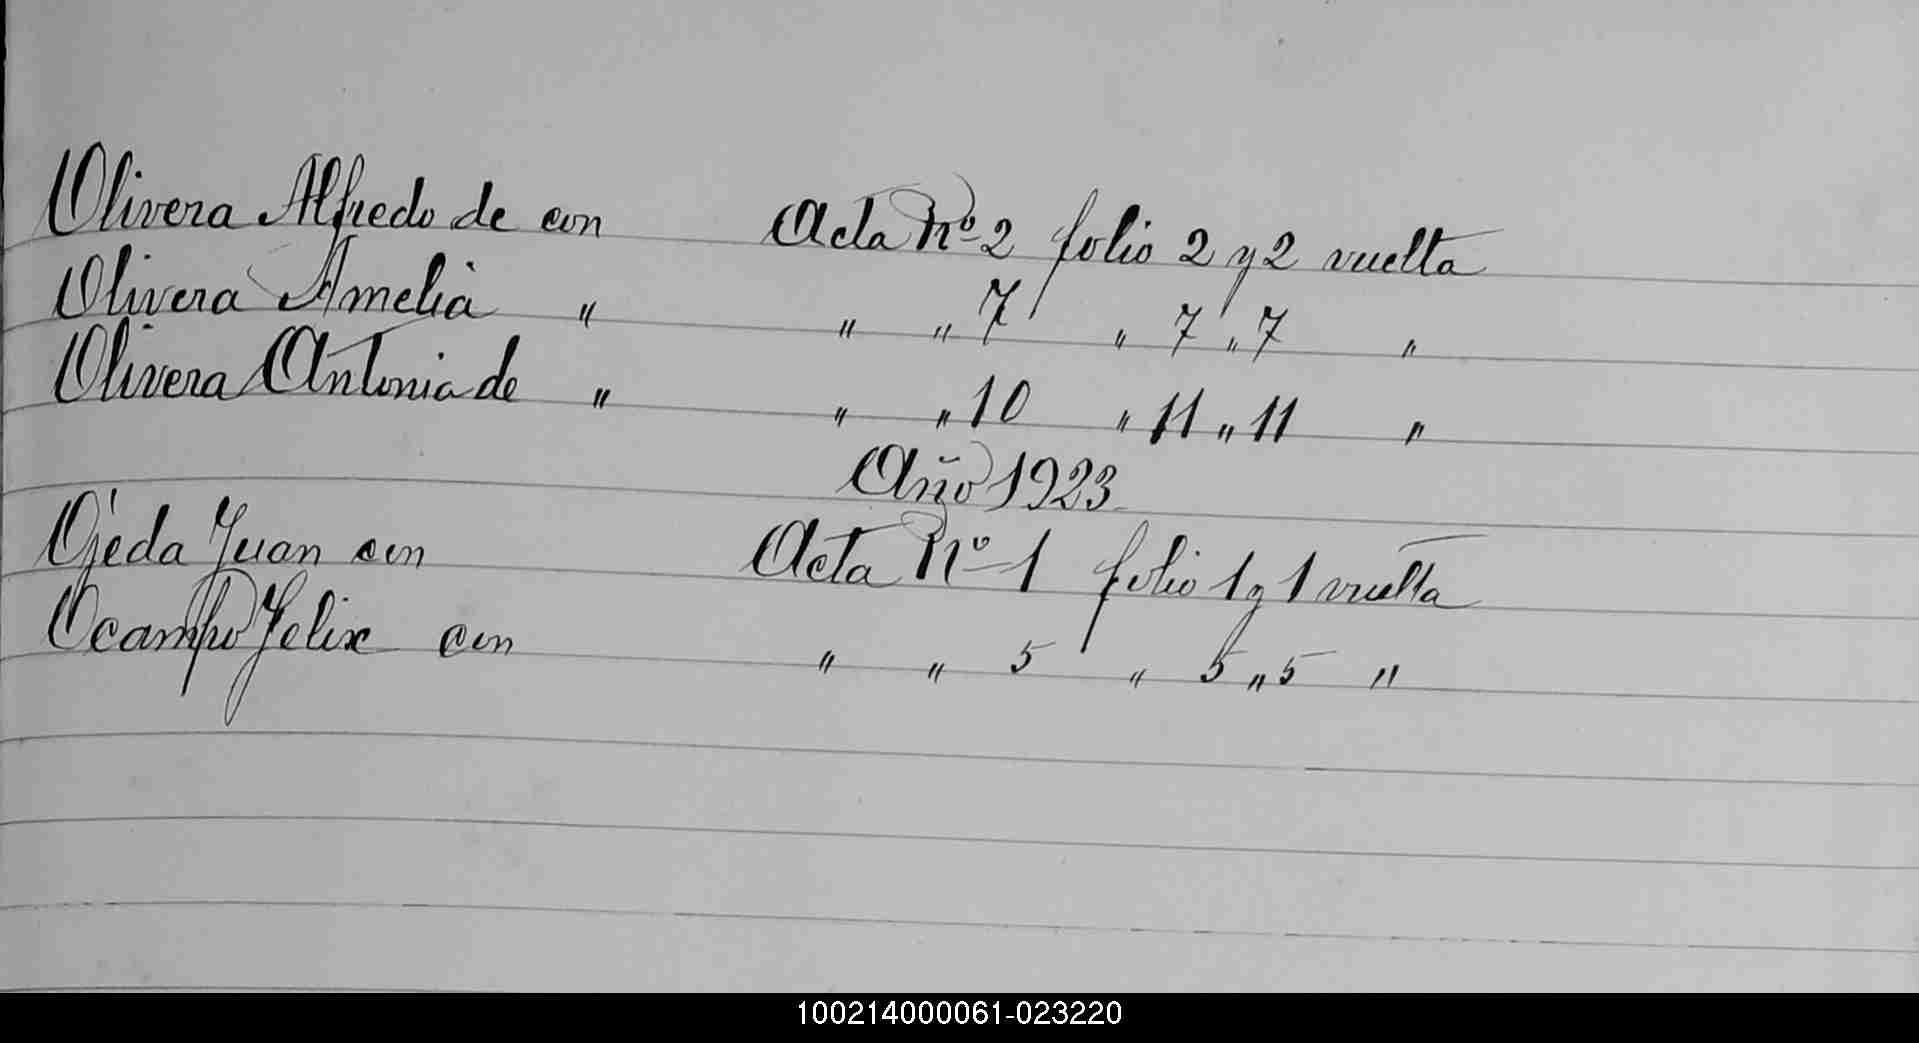 Olivera Alfredo de con Acta Nº 2 folio 2 y 2 vuelta
Olivera Amelia " " " 7 " 7 " 7 "
Olivera Antonia de " " " 10 " 11 " 11 "
Año 1923
Ojeda Juan con Acta Nº 1 folio 1 y 1 vuelta
Ocampo Felix con " " 5 " 5 " 5 "
100214000061-023220